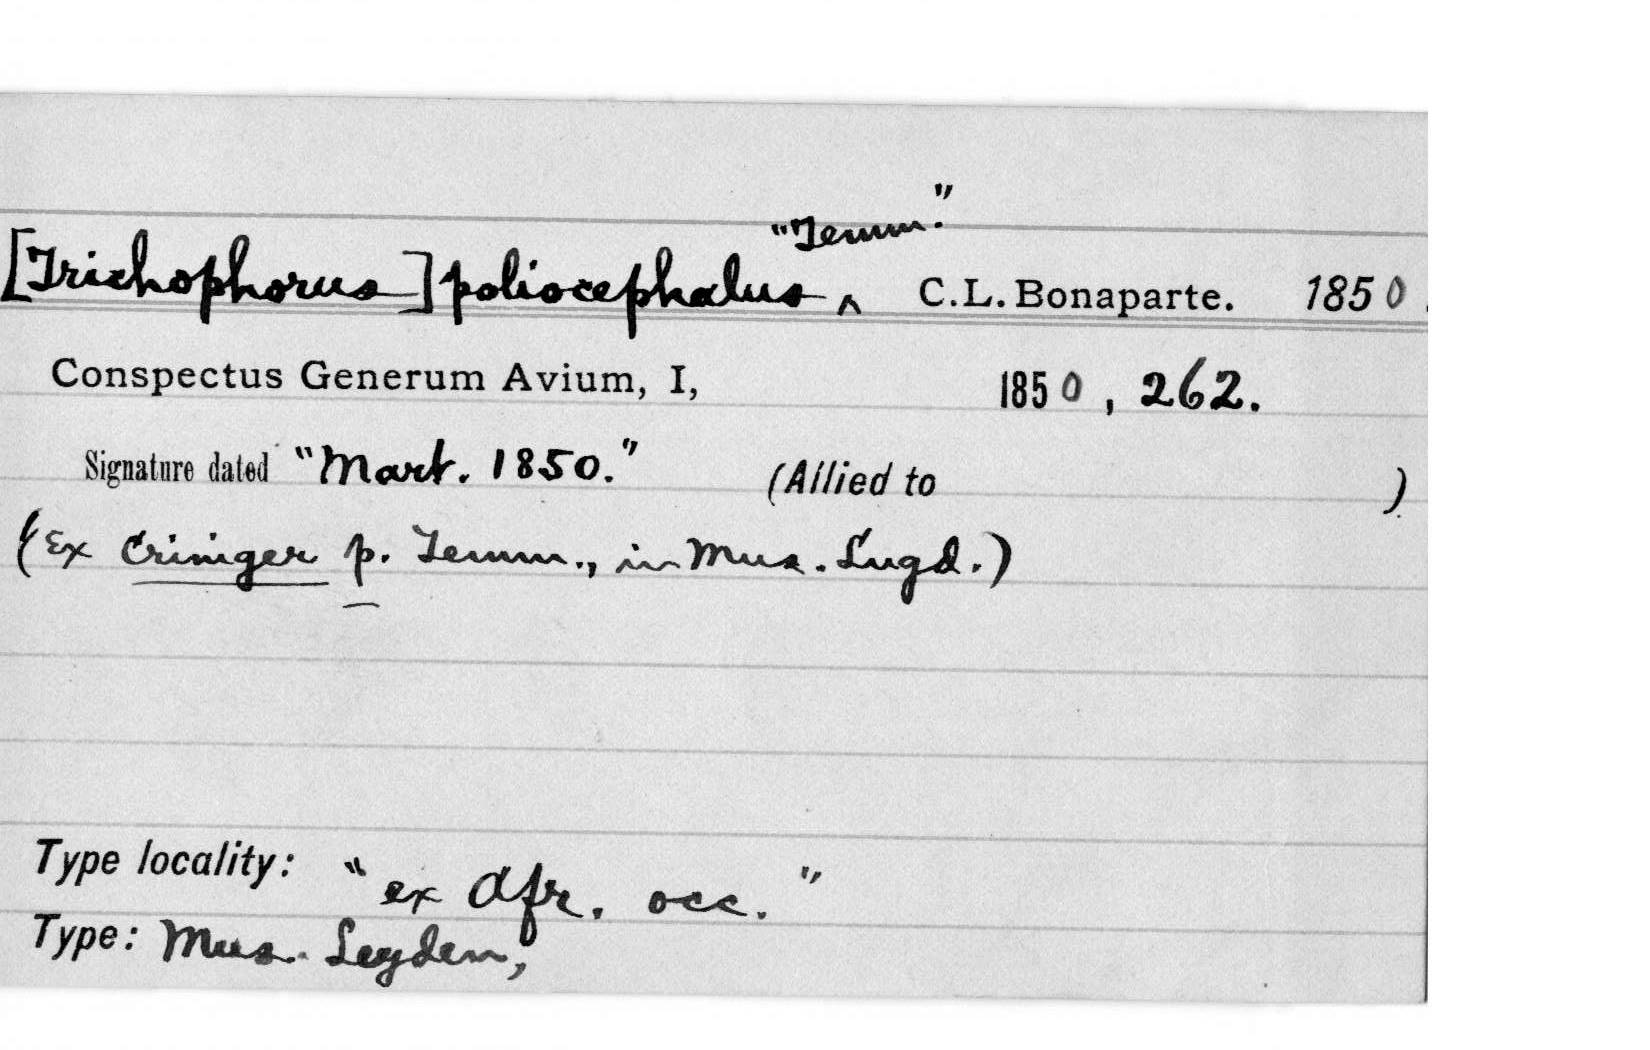 [Trichophorus] poliocephalus ‸ "Temm." C.L. Bonaparte. 1850.
Conspectus Generum Avium, I, 1850, 262.
Signature dated "Mart. 1850." (Allied to )
(Ex Criniger p. Temm., in Mus. Lugd.)
Type locality: "ex Afr. occ."
Type: Mus. Leyden,